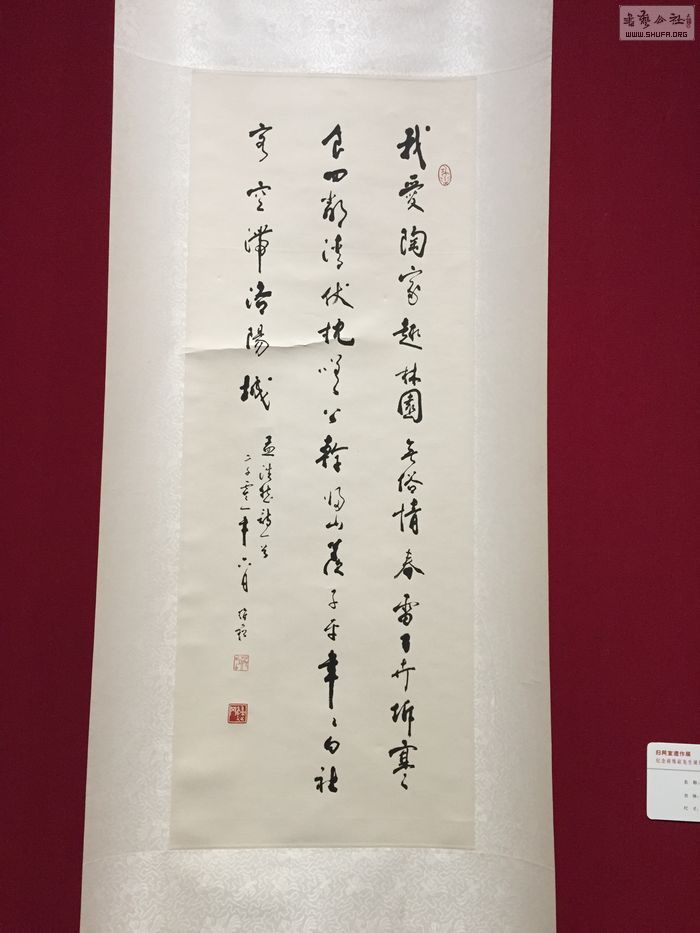 我愛陶家趣林園無俗情春雷百卉坼寒
食四鄰清伏枕嗟公幹歸山羨子平年〻白社
客空滯洛陽城
孟浩然詩一首
二千零一年六月
書藝公社
WWW.SHUFA.ORG
遗作展